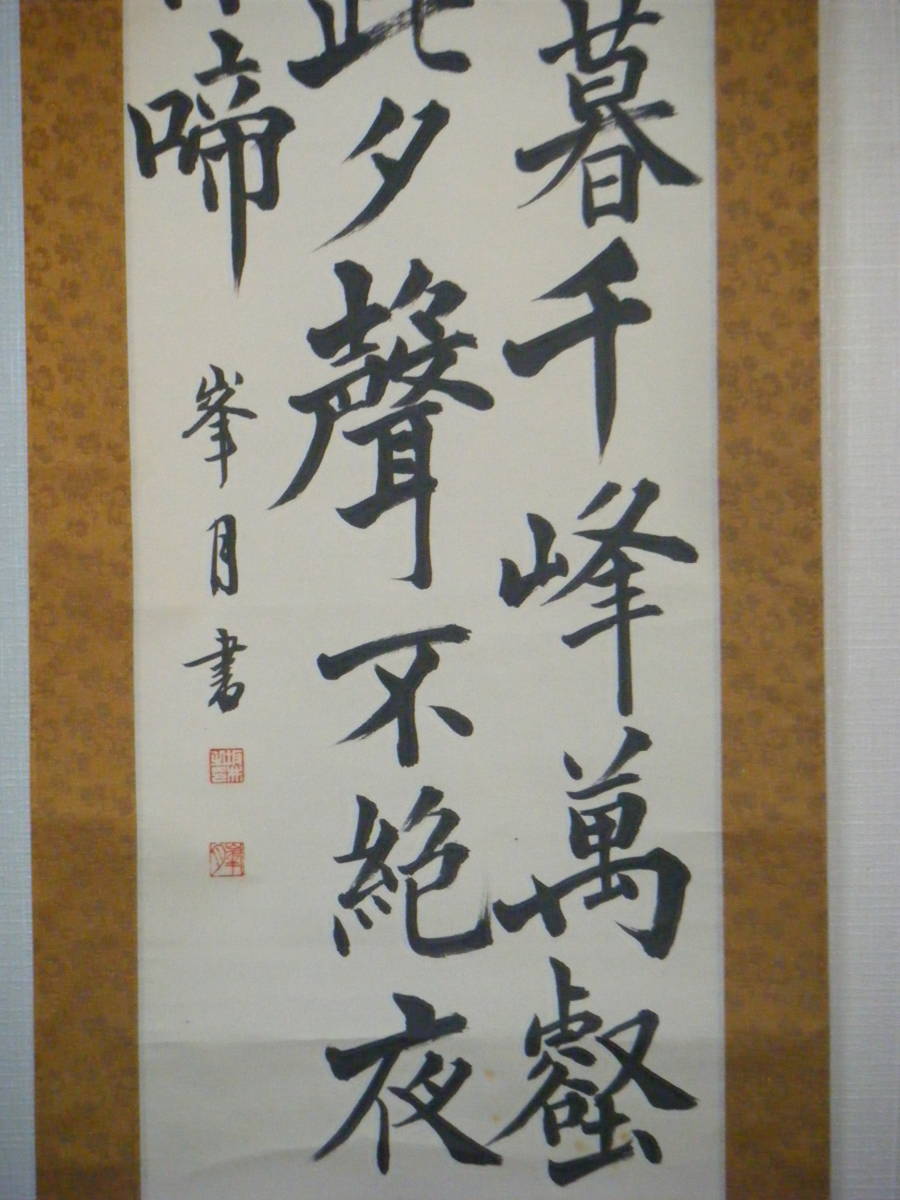 暮千峰萬壑
此夕聲不絕夜
啼
峯月書